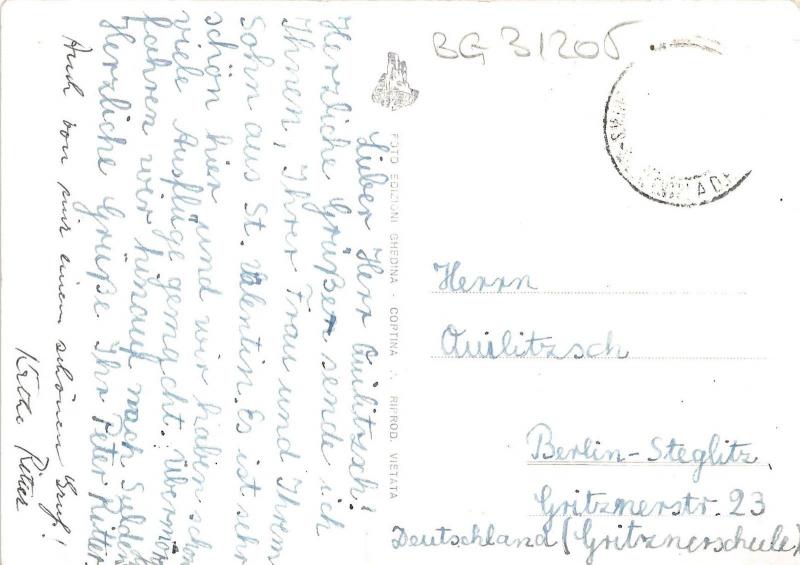 BG 31205
Lieber Herr Quilitzsch!
Herzliche Grüße sende ich
Ihnen, Ihrer Frau und Ihrem
Sohn aus St. Valentin. Es ist sehr
schön hier und wir haben schon
viele Ausflüge gemacht. Übermor
fahren wir hinauf nach Sulden
Herzliche Grüße Ihr Peter Ritter.
Auch von mir einen schönen Gruß!
Käthe Ritter
FOTO EDIZIONI GHEDINA - CORTINA RIPROD. VIETATA
Herrn
Quilitzsch
Berlin-Steglitz
Gritznerstr. 23
Deutschland (Gritznerschule)